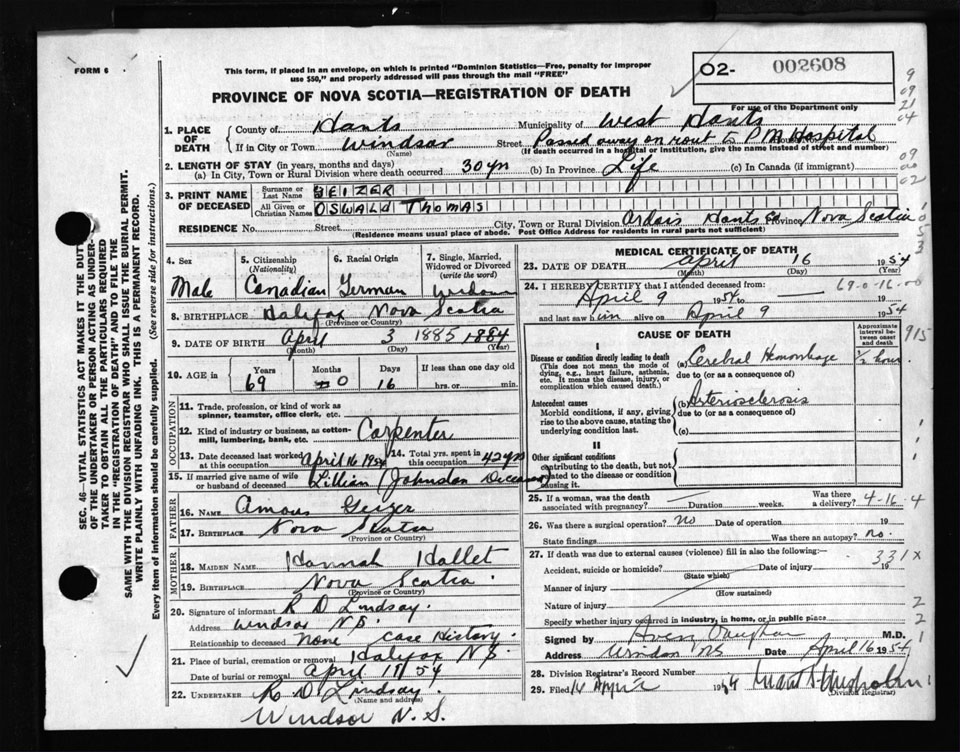 FORM 6
This form, if placed in an envelope, on which is printed "Dominion Statistics—Free, penalty for improper
use $50," and properly addressed will pass through the mail "FREE"
PROVINCE OF NOVA SCOTIA—REGISTRATION OF DEATH
O2- 002608
For use of the Department only
9
09
21
04
1. PLACE OF DEATH
County of Hants Municipality of West Hants
If in City or Town Windsor Street Passed away on rout to P M Hospital
(Name) (If death occurred in a hospital or institution, give the name instead of street and number)
2. LENGTH OF STAY (in years, months and days)
(a) In City, Town or Rural Division where death occurred 30 yrs (b) In Province Life (c) In Canada (if immigrant)
09
00
02
3. PRINT NAME OF DECEASED
Surname or Last Name GEIZER
All Given or Christian Names OSWALD THOMAS
RESIDENCE No. Street City, Town or Rural Division Ardois Hants Co Province Nova Scotia
(Residence means usual place of abode. Post Office Address for residents in rural parts not sufficient)
4. Sex
Male
5. Citizenship
(Nationality)
Canadian
6. Racial Origin
German
7. Single, Married,
Widowed or Divorced
(write the word)
8. BIRTHPLACE Halifax Nova Scotia
(Province or Country)
9. DATE OF BIRTH April 3 1885 1884
(Month) (Day) (Year)
10. AGE in
Years Months Days If less than one day old
69 0 16 hrs. or min.
OCCUPATION
11. Trade, profession, or kind of work as
spinner, teamster, office clerk, etc.
12. Kind of industry or business, as cotton-
mill, lumbering, bank, etc. Carpenter
13. Date deceased last worked
at this occupation April 16 1954
14. Total yrs. spent in
this occupation 42 yrs
15. If married give name of wife
or husband of deceased Lillian (Johnston Deceased
FATHER
16. NAME Amous Geizer
17. BIRTHPLACE Nova Scotia
(Province or Country)
MOTHER
18. MAIDEN NAME Hannah Hallet
19. BIRTHPLACE Nova Scotia
(Province or Country)
20. Signature of informant R D Lindsay.
Address Windsor N S.
Relationship to deceased None Case History.
21. Place of burial, cremation or removal Halifax N S.
Date of burial or removal April 54
22. UNDERTAKER R D Lindsay.
(Name and address)
Windsor N. S.
MEDICAL CERTIFICATE OF DEATH
23. DATE OF DEATH April 16 1954
(Month) (Day) (Year)
24. I HEREBY CERTIFY that I attended deceased from: 69-0-16-00
April 9 1954 to 19
and last saw him alive on April 9 1954
CAUSE OF DEATH
Approximate
interval be-
tween onset
and death
915
I
Disease or condition directly leading to death
(This does not mean the mode of
dying, e.g., heart failure, asthenia,
etc. It means the disease, injury, or
complication which caused death.)
(a) Cerebral Hemorrhage 1/2 hour
due to (or as a consequence of)
Antecedent causes
Morbid conditions, if any, giving
rise to the above cause, stating the
underlying condition last.
(b) Arteriosclerosis
due to (or as a consequence of)
(c)
II
Other significant conditions
contributing to the death, but not
related to the disease or condition
causing it
25. If a woman, was the death
associated with pregnancy? Duration weeks. Was there
a delivery? 4-16-4
26. Was there a surgical operation? No Date of operation 19
State findings Was there an autopsy? no.
27. If death was due to external causes (violence) fill in also the following:
331X
Accident, suicide or homicide? Date of injury 19
(State which)
Manner of injury
(How sustained)
Nature of injury 2
Specify whether injury occurred in industry, in home, or in public place 2
Signed by Avery Vaughan M.D. 1
Address Windsor NS Date April 16 1954
28. Division Registrar's Record Number
29. Filed 16 April 1954
(Division Registrar)
SEC. 46—VITAL STATISTICS ACT MAKES IT THE DUTY
OF THE UNDERTAKER OR PERSON ACTING AS UNDER-
TAKER TO OBTAIN ALL THE PARTICULARS REQUIRED
IN THE "REGISTRATION OF DEATH" AND TO FILE THE
SAME WITH THE DIVISION REGISTRAR WHO SHALL ISSUE THE BURIAL PERMIT.
WRITE PLAINLY WITH UNFADING INK. THIS IS A PERMANENT RECORD.
Every item of information should be carefully supplied. (See reverse side for instructions.)